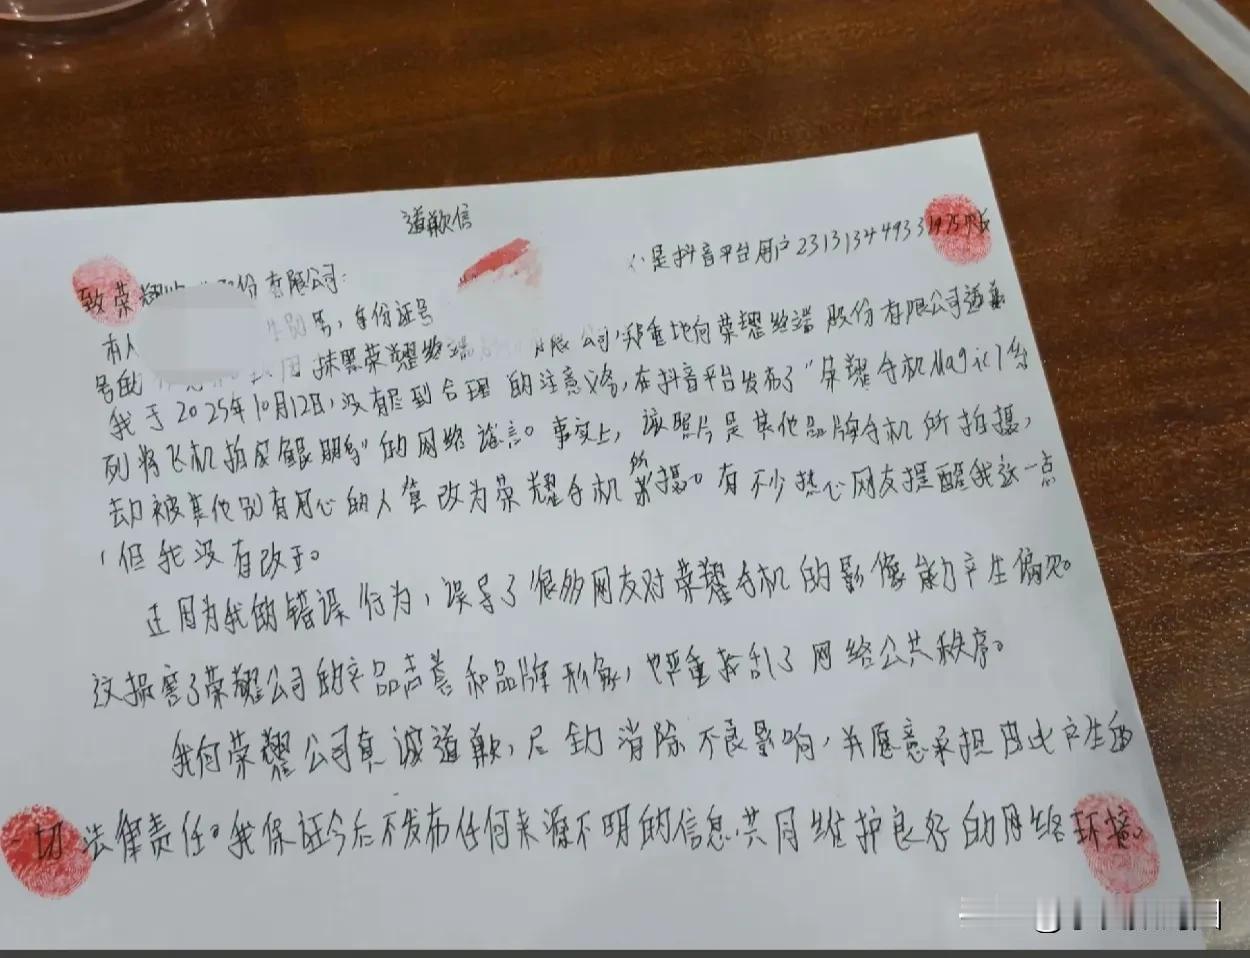 道歉信
致荣耀 股份有限公司:
本人 性别男,身份证号 是抖音平台用户2313134493319751账
号的 抹黑荣耀终端 有限公司,郑重地向荣耀终端股份有限公司道歉
我于2025年10月12日,没有尽到合理的注意义务,在抖音平台发布了“荣耀手机Magic7系
列将飞机拍成鲲鹏”的网络谣言。事实上,该照片是其他品牌手机所拍摄,
却被其他别有用心的人篡改为荣耀手机所拍摄。有不少热心网友提醒我这一点
,但我没有改正。
正因为我的错误行为,误导了很多网友对荣耀手机的影像能力产生偏见。
这损害了荣耀公司的产品声誉和品牌形象,也严重扰乱了网络公共秩序。
我向荣耀公司真诚道歉,尽全力消除不良影响,并愿意承担因此产生的一
切法律责任。我保证今后不发布任何来源不明的信息,共同维护良好的网络环境。